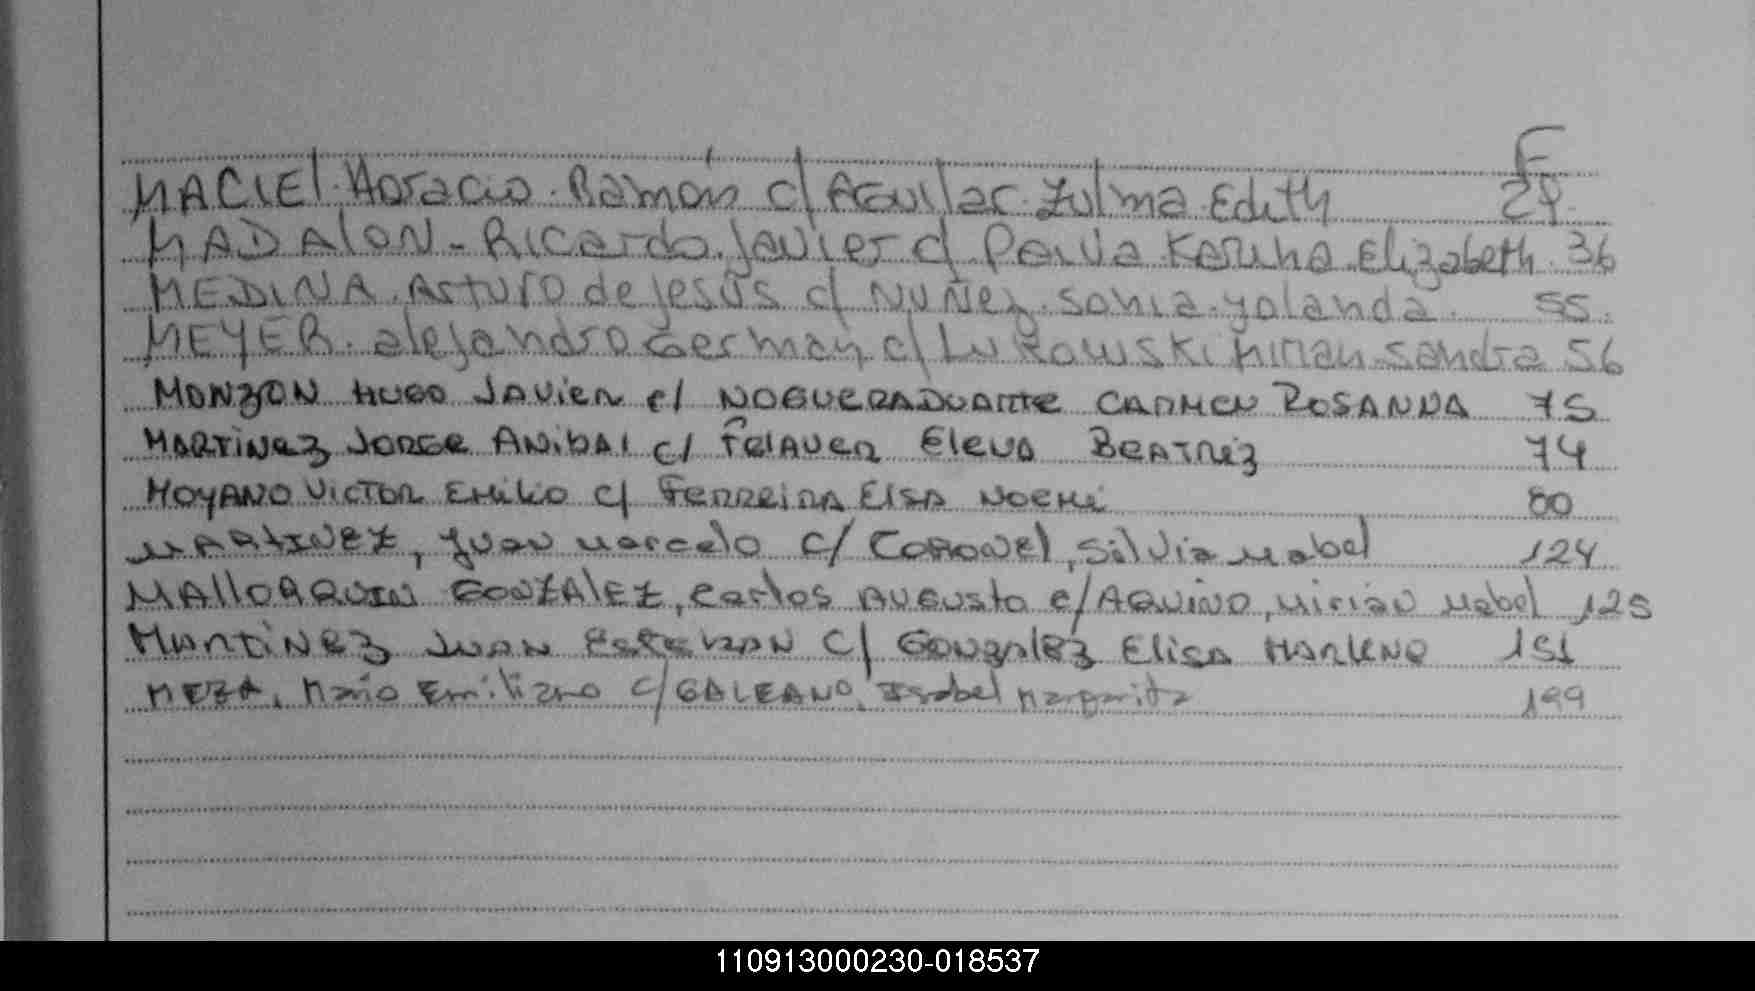 F
MACIEL. Horacio. Ramón c/ Aguilar. Zulma Edith 29.
MADALON - Ricardo. Javier c/ Paiva Karina Elizabeth. 36
MEDINA. Arturo de Jesús c/ Nuñez. Sonia. Yolanda. 55.
MEYER. Alejandro German c/ Lukowski Mirian Sandra 56
MONZON HUGO JAVIER c/ NOGUERA DUARTE CARMEN ROSANNA 75
MARTINEZ JORGE ANIBAL c/ ELENA BEATRIZ 74
MOYANO VICTOR EMILIO c/ FERREIRA ELSA NOEMI 80
MARTINEZ, Juan Marcelo c/ CORONEL, Silvia Mabel 124
MALLORQUIN GONZALEZ, Carlos Augusto c/ AQUINO, Mirian Mabel 125
MARTINEZ JUAN ESTEBAN c/ GONZALEZ ELISA MARLENE 151
MEZA, Mario Emiliano c/ GALEANO, Isabel Margarita 199
110913000230-018537